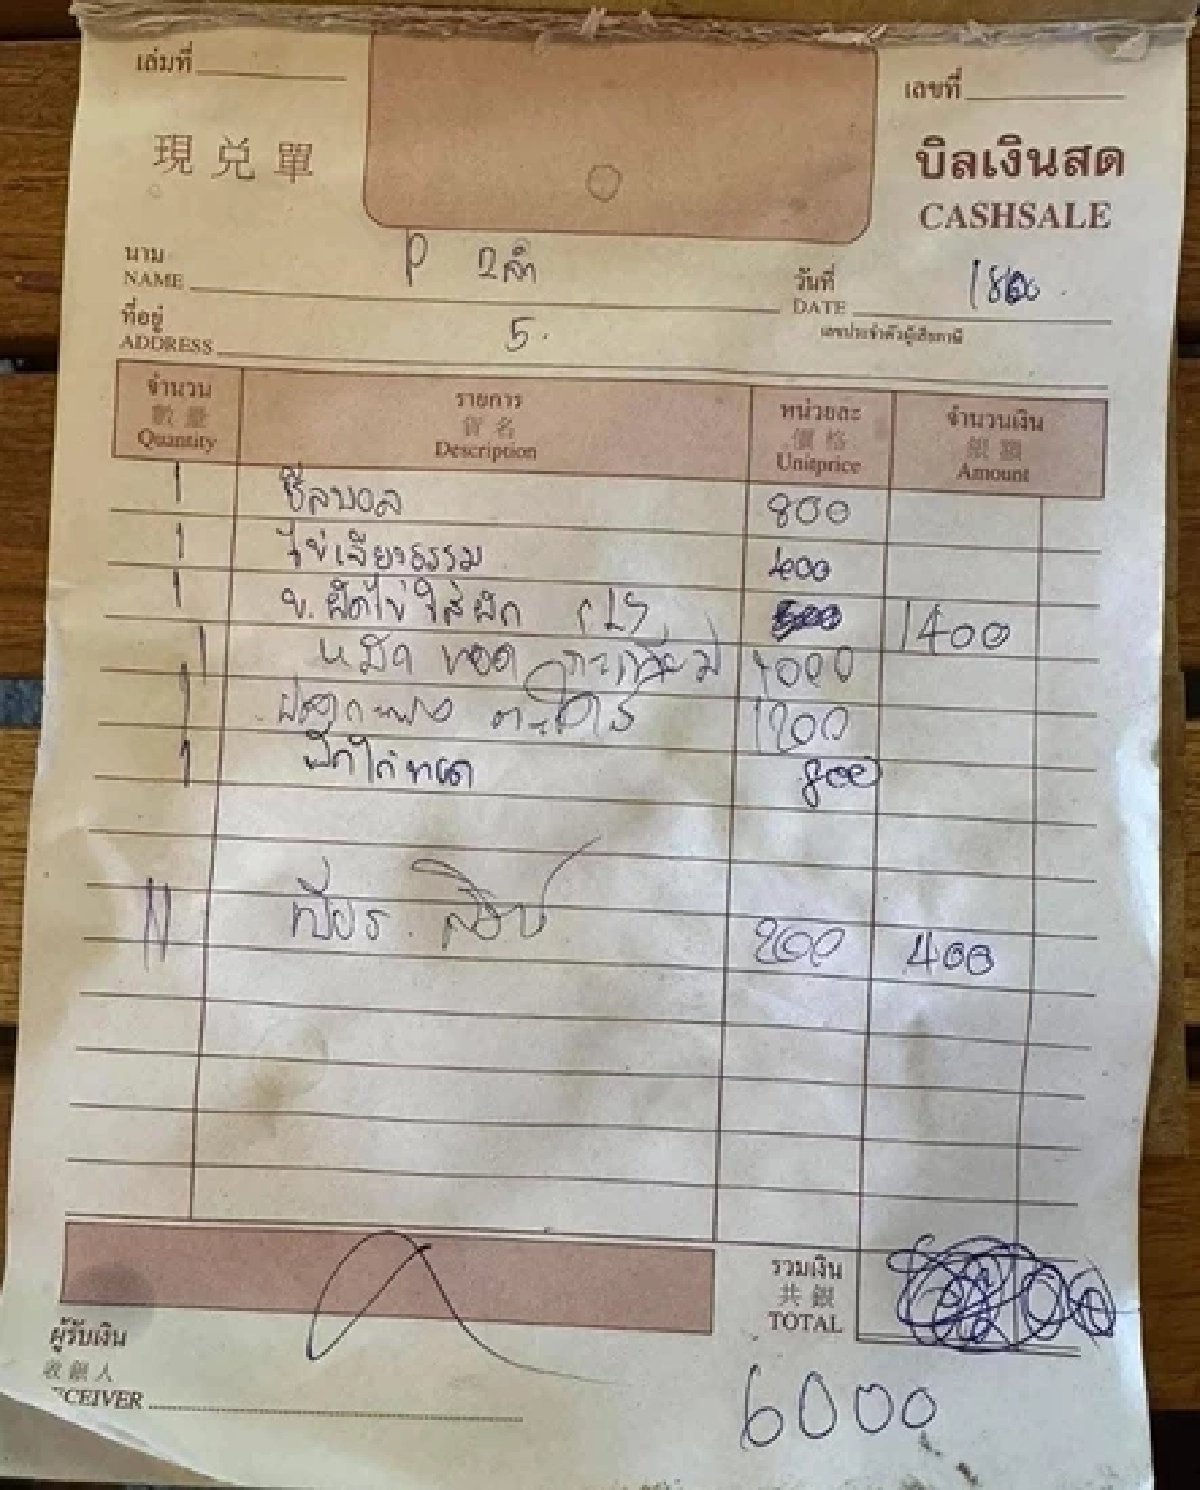 เล่มที่
เลขที่
現兑單
บิลเงินสด
CASHSALE
นาม
NAME P 2 ลำ
วันที่
DATE
ที่อยู่
ADDRESS 5.
เลขประจำตัวผู้เสียภาษี
จำนวน รายการ หน่วยละ จำนวนเงิน
數量 貨名 價格 銀額
Quantity Description Unitprice Amount
1 ซีสบอล 800
1 ไข่เจียวธรรม 400
1 ข. ผัดไข่ใส่ผัก 1400
1 หมึก ทอด กระเทียม 1000
1 1200
1 ปีกไก่ทอด 800
200 400
รวมเงิน
共銀
TOTAL
ผู้รับเงิน
收銀人
CEIVER
6000